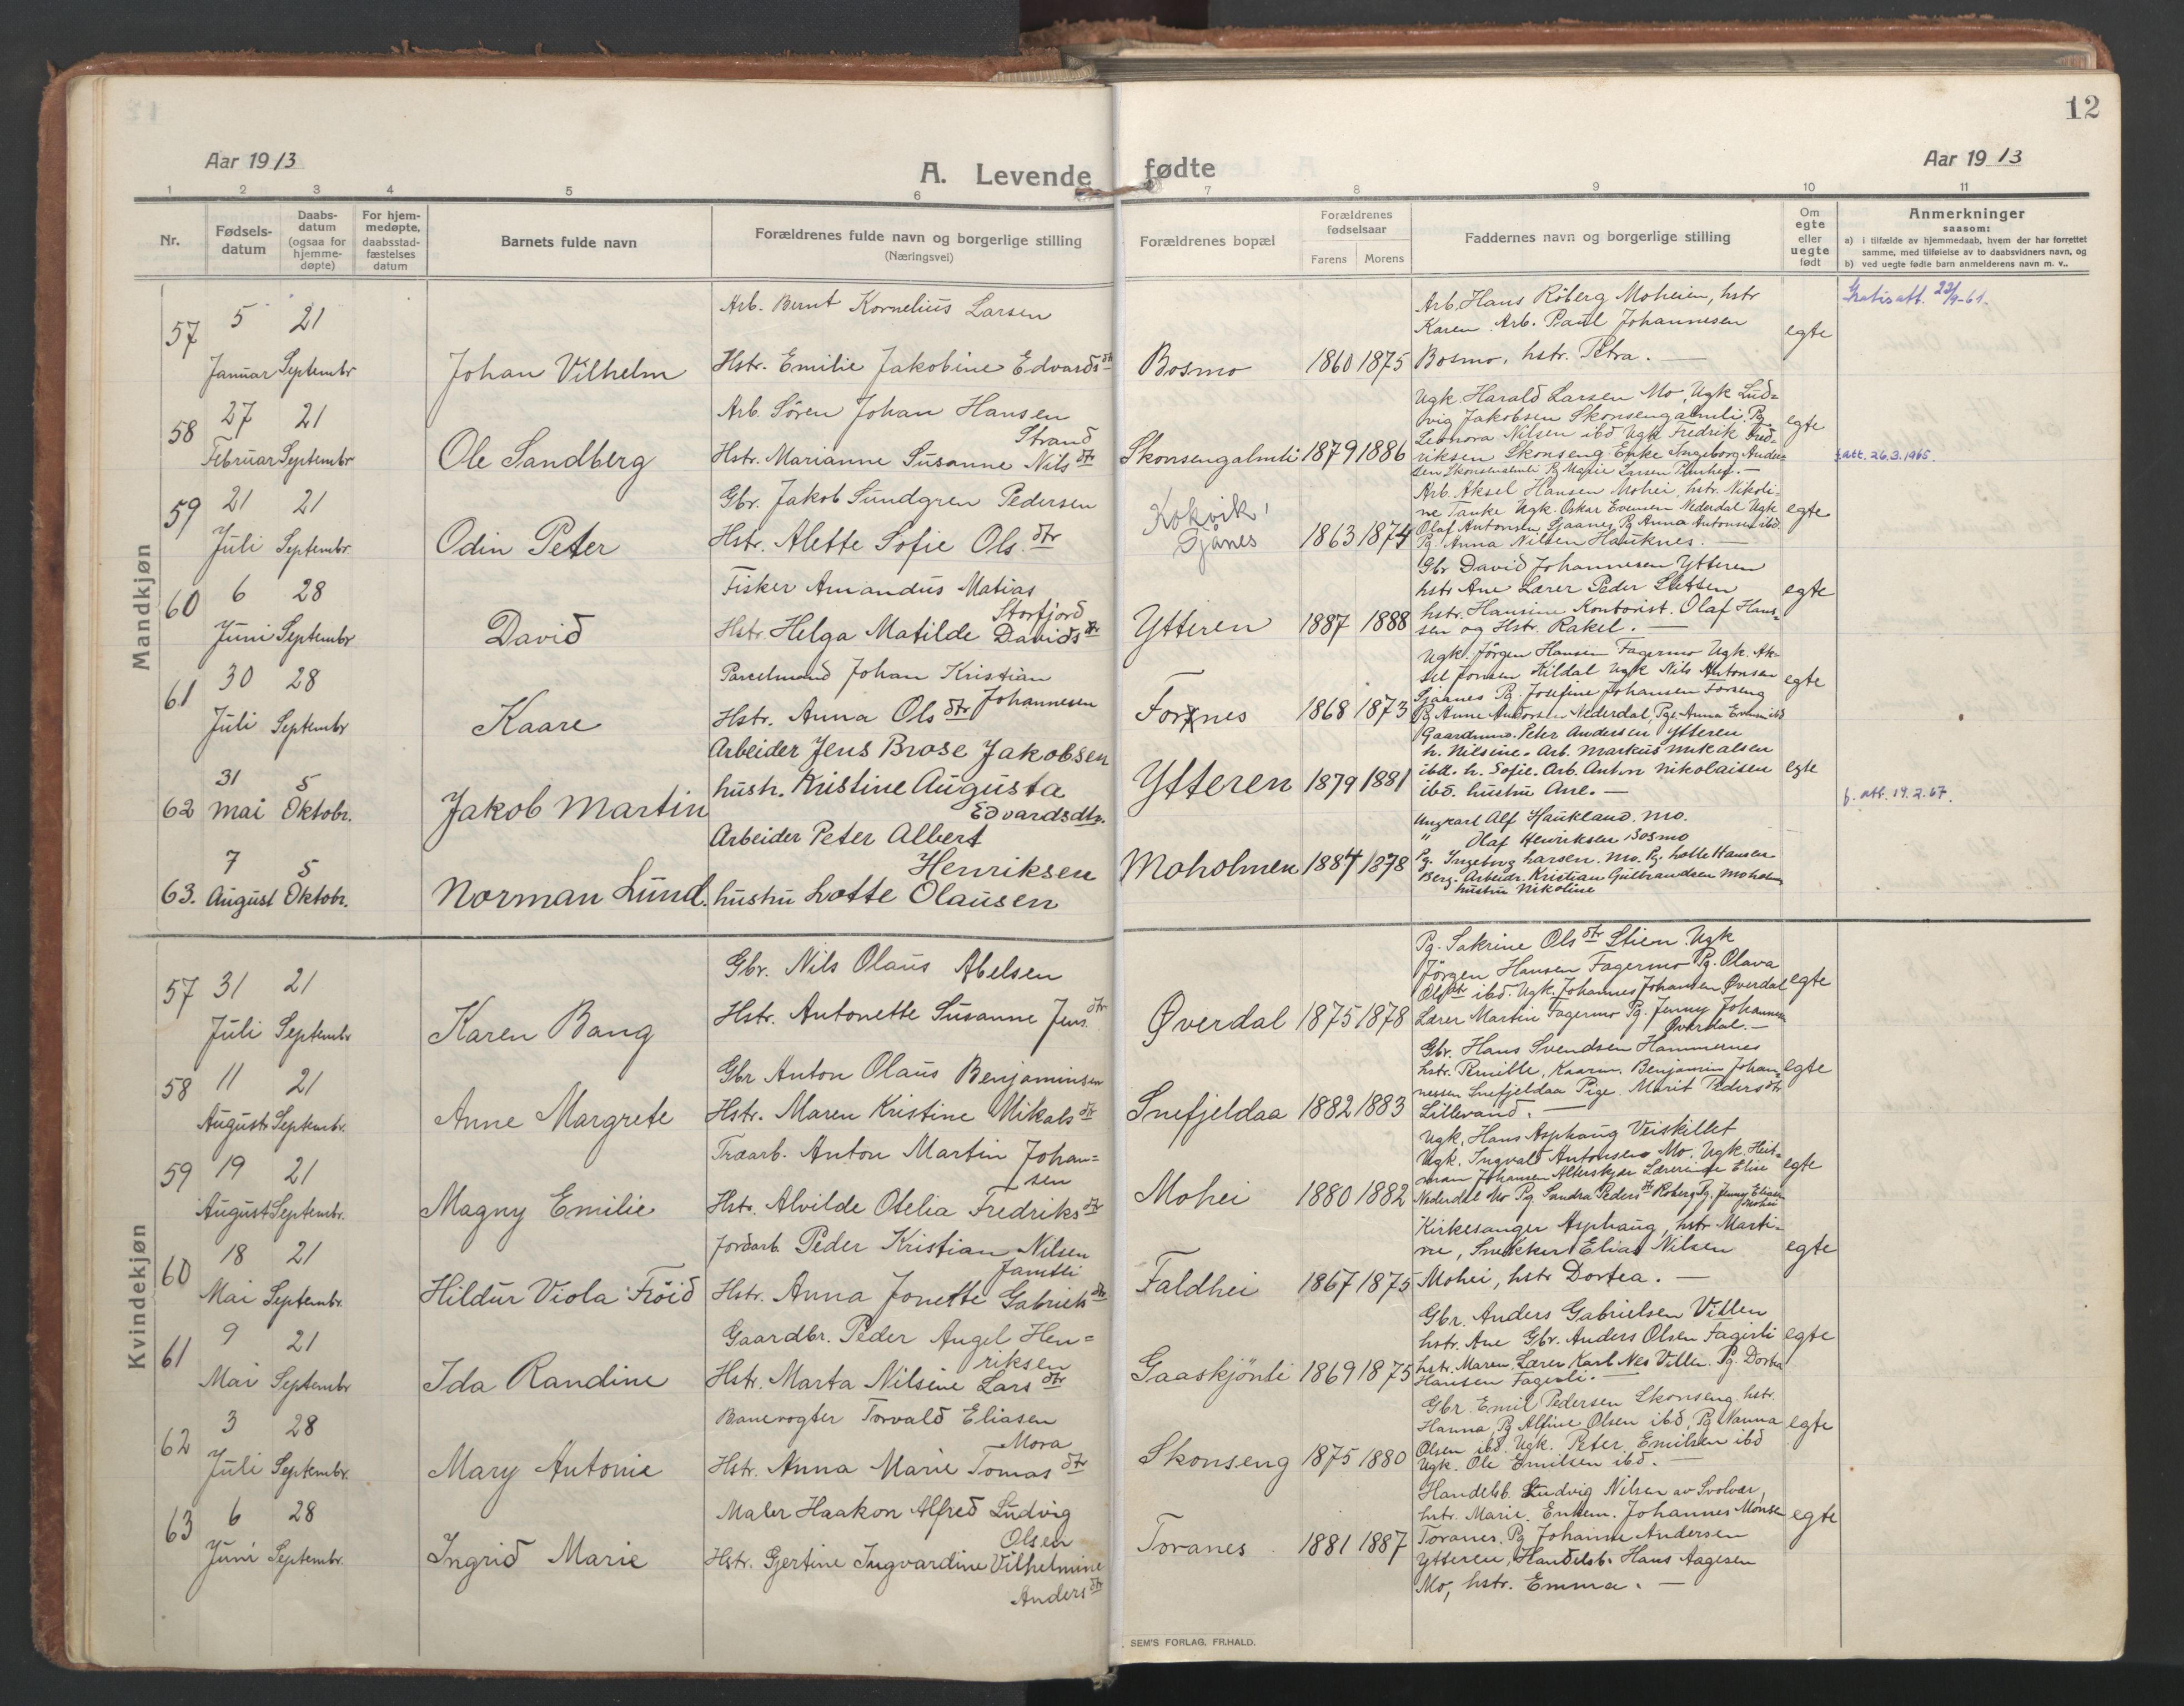 12
Aar 1913
A. Levende fødte
Aar 1913
1 2 3 4 5 6 7 8 9 10 11
Nr.
Fødsels-
datum
Daabs-
datum
(ogsaa for
hjemme-
døpte)
For hjem-
medøpte,
daabsstad-
fæstelses
datum
Barnets fulde navn
Forældrenes fulde navn og borgerlige stilling
(Næringsvei)
Forældrenes bopæl
Forældrenes
fødselsaar
Farens Morens
Faddernes navn og borgerlige stilling
Om
egte
eller
uegte
født
Anmerkninger
saasom:
a) i tilfælde av hjemmedaab, hvem der har forrettet
samme, med tilføielse av to daabsvidners navn, og
b) ved uegte fødte barn anmelderens navn m. v..
Mandkjøn
57
5 21
Januar Septembr
Johan Vilhelm
Arb. Bernt Kornelius Larsen
Hstr. Emilie Jakobine Edvardsdtr
Bosmo
1860 1875
Arb. Hans Röberg Moheien, hstr
Karen Arb. Paul Johannesen
Bosmo, hstr. Petra. —
egte
Gratisatt. 22/9-61.
58
27 21
Februar Septembr
Ole Sandberg
Arb. Sören Johan Hansen
Strand
Hstr. Marianne Susanne Nilsdtr
Skonsengalmli
1879 1886
Ugk. Harald Larsen Mo, Ugk Lud=
vig Jakobsen Skonsengalmli. Pg.
Leonora Nilsen ibd Ugk Fredrik Fred=
riksen Skonseng Enke Ingeborg Ander=
sen Skonsengalmli Pg Marie Larsen
egte
f.att. 26.3.1965.
59
21 21
Juli Septembr
Odin Peter
Gbr. Jakob Sundgren Pedersen
Hstr. Alette Sofie Olsdtr
Kokvik,
Sjånes
1863 1874
Arb. Aksel Hansen Mohei, hstr. Nikoli=
ne Tanke Ugk. Oskar Evensen Nederdal Ugk
Olaf Antonsen Sjaanes, Pg Anna Antonsen ibd.
Pg. Anna Nilsen Hauknes. —
egte
60
6 28
Juni Septembr
David
Fisker Amandus Matias
Storfjord
Hstr. Helga Matilde Davidsdtr
Ytteren
1887 1888
Gbr David Johannesen Ytteren
hstr Ane Lærer Peder Sletten
hstr. Hansine Kontorist. Olaf Han=
sen og Hstr. Rakel. —
egte
61
30 28
Juli Septembr
Kaare
Parcelmand Johan Kristian
Johannesen
Hstr. Anna Olsdtr
Forsnes
1868 1873
Ugk. Jörgen Hansen Fagermo Ugk. Ak=
sel Jonsen Kildal Ugk Nils Antonsen
Sjaanes Pg. Josefine Johansen Forseng
Pg Anne Andorsen Nederdal, Pge Anna Evensen ibd
egte
62
31 5
Mai Oktobr.
Jakob Martin
Arbeider Jens Brose Jakobsen
hustr. Kristine Augusta
Edvardsdtr.
Ytteren
1879 1881
Gaardmand. Peter Andersen Ytteren
h. Nilsine. Arb. Markus Mikalsen
ibd. h. Sofie. Arb. Anton Nikolaisen
ibd. hustru Ane. —
egte
f. att. 19.2.67.
63.
7 5
August Oktobr.
Norman Lund.
Arbeider Peter Albert
Henriksen
hustru Lotte Olausen
Moholmen
1887 1878
Ungkarl Alf Haukland. Mo.
" Olaf Henriksen Bosmo
Pg. Ingeborg Larsen. Mo. Pg. Lotte Hansen
Berg. Arbeidr. Kristian Gulbrandsen Moholm
hustru Nikoline
Kvindekjøn
57
31 21
Juli Septembr
Karen Bang
Gbr. Nils Olaus Abelsen
Hstr. Antonette Susanne Jensdtr
Øverdal
1875 1878
Pg. Sakrine Olsdtr Stien. Ugk
Jörgen Hansen Fagermo Pg. Olava
Olsdtr ibd. Ugk. Johannes Johansen Øverdal
Lærer Martin Fagermo Pg. Jenny Johannesen
Øverdal. —
egte
58
11 21
August Septembr.
Anne Margrete
Gbr Anton Olaus Benjaminsen
Hstr. Maren Kristine Mikalsdtr
Snefjeldaa
1882 1883
Gbr. Hans Svendsen Hammernes
hstr. Pernille, Kaarm. Benjamin Johan=
nessen Snefjeldaa Pige. Marit Pedersdtr
Lillevand. —
egte
59
19 21
August Septembr.
Magny Emilie
Træarb. Anton Martin Johan=
sen
Hstr. Alvilde Ofelia Fredriksdtr
Mohei
1880 1882
Ugk. Hans Asphaug Veiskillet
Ugk. Ingvald Antonsen Mo, Ugk. Heit=
man Johansen Alterskjær Lærerinde Elise
Nederdal Mo Pg Sandra Pedersdtr Röberg, Pg. Jenny Eliasen
Mohei
egte
60
18 21
Mai Septembr.
Hildur Viola Fröid
Jordarb. Peder Kristian Nilsen
Jamtli
Hstr. Anna Jonette Gabrielsdtr
Faldhei
1867 1875
Kirkesanger Asphaug, hstr Marti=
ne, Snekker Elias Nilsen
Mohei, hstr Dortea. —
egte
61
9 21
Mai Septembr
Ida Randine
Gaardbr. Peder Angel Hen=
riksen
Hstr. Marta Nilsine Larsdtr
Gaaskjönli
1869 1875
Gbr. Anders Gabrielsen Villen
hstr. Ane Gbr. Anders Olsen Fagerli
hstr. Maren, Lærer Karl Nes Villen. Pg. Dortea
Hansen Fagerli. —
egte
62
3 28
Juli Septembr.
Mary Antonie
Banevogter Torvald Eliasen
Mora
Hstr. Anna Marie Tomasdtr
Skonseng
1875 1880
Gbr. Emil Pedersen Skonseng hstr.
Hanna, Pg Alfine Olsen ibd, Pg Nanna
Olsen ibd. Ugk. Peter Emilsen ibd
Ugk. Ole Emilsen ibd. —
egte
63
6 28
Juni Septembr.
Ingrid Marie
Maler Haakon Alfred Ludvig
Olsen
Hstr. Gjertine Ingvardine Vilhelmine
Andersdtr
Toranes
1881 1887
Handelsb. Ludvig Nilsen av Svolvær,
hstr. Marie. Enkem. Johannes Monsen
Toranes. Pg Johanne Andersen
Ytteren, Handelsb. Hans Aagesen
Mo, hstr. Emma. —
egte
SEM'S FORLAG, FR.HALD.